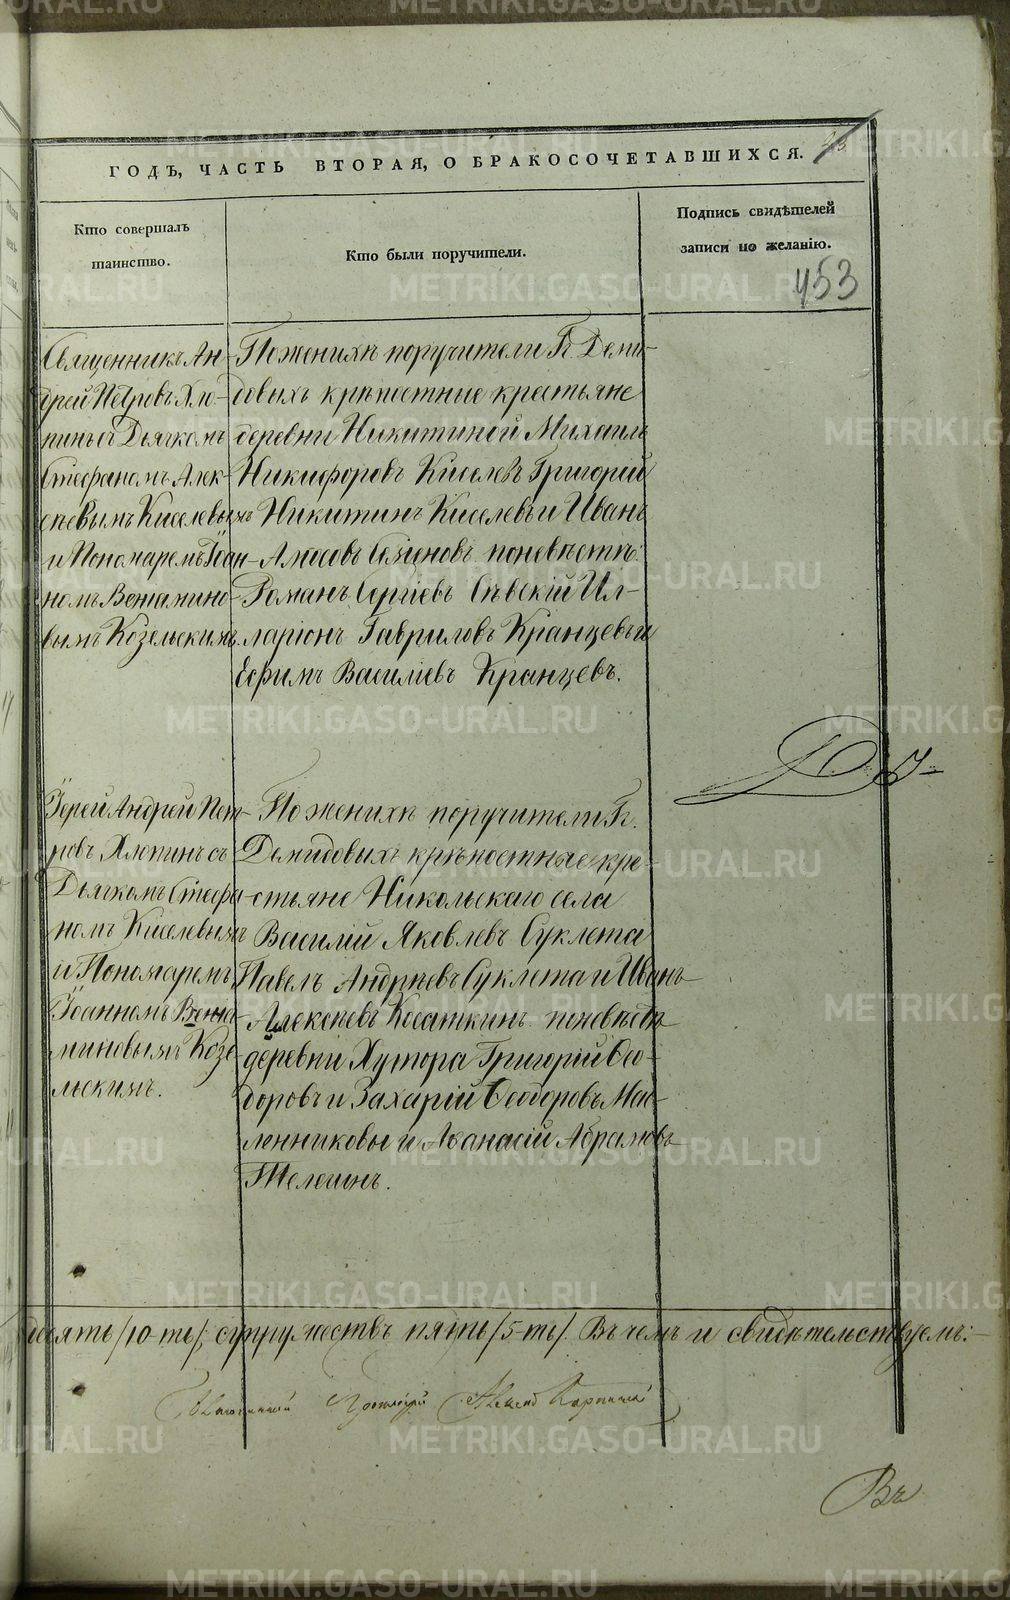 ГОДЪ, ЧАСТЬ ВТОРАЯ, О БРАКОСОЧЕТАВШИХСЯ.
Кто совершалъ
таинство.
Кто были поручители.
Подпись свидѣтелей
записи по желанію.
453
Священникъ Ан-
дрей Петровъ Хло-
пинъ съ Дьячкомъ
Стефаномъ Алек-
сѣевымъ Киселевымъ
и Пономаремъ Іоан-
номъ Веніамино-
вымъ Козельскимъ.
По женихѣ поручители Гг. Деми-
довыхъ крѣпостные крестьяне
деревни Никитиной Михаилъ
Никифоровъ Киселевъ Григорій
Никитинъ Киселевъ и Иванъ
Амосовъ поневѣстѣ:
Романъ Сергіевъ Сѣвскій Ил-
ларіонъ Гавриловъ Кранцевъ и
Ефимъ Василіевъ Кранцевъ.
Іерей Андрей Пет-
ровъ Хлопинъ съ
Дьячкомъ Стефа-
номъ Киселевымъ
и Пономаремъ
Іоанномъ Веніа-
миновымъ Козе-
льскимъ.
По женихѣ поручители Гг.
Демидовыхъ крѣпостные кре-
стьяне Никольскаго села
Василій Яковлевъ Суклета
Павелъ Андреевъ Суклета и Иванъ
Алексѣевъ Косаткинъ поневѣстѣ
деревни Хутора Григорій Ѳео-
доровъ и Захарій Ѳеодоровъ Мас-
ленниковы и Аѳанасій Абрамовъ
Телегинъ.
десять /10-ть/, супружествъ пять /5-ть/. Въ чемъ и свидѣтельствуемъ:
Протоіерей
Въ
METRIKI.GASO-URAL.RU